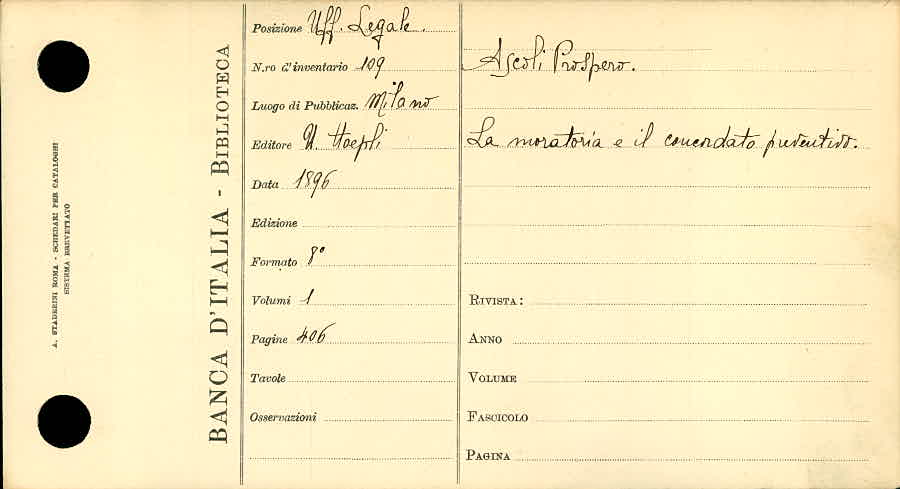 A. STADERINI ROMA - SCHEDARI PER CATALOGHI
SISTEMA BREVETTATO
BANCA D'ITALIA - BIBLIOTECA
Posizione Uff. Legale.
N.ro d'inventario 109
Luogo di Pubblicaz. Milano
Editore U. Hoepli
Data 1896
Edizione
Formato 8°
Volumi 1
Pagine 406
Tavole
Osservazioni
Ascoli Prospero.
La moratoria e il concordato preventivo.
RIVISTA:
ANNO
VOLUME
FASCICOLO
PAGINA